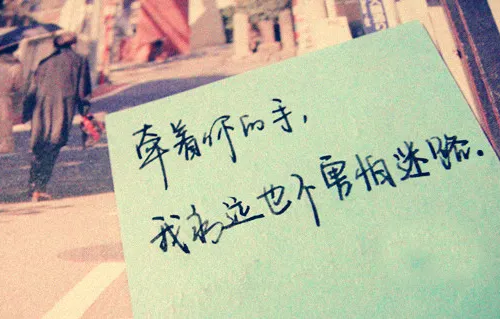 牵着你的手，
我永远也不害怕迷路．